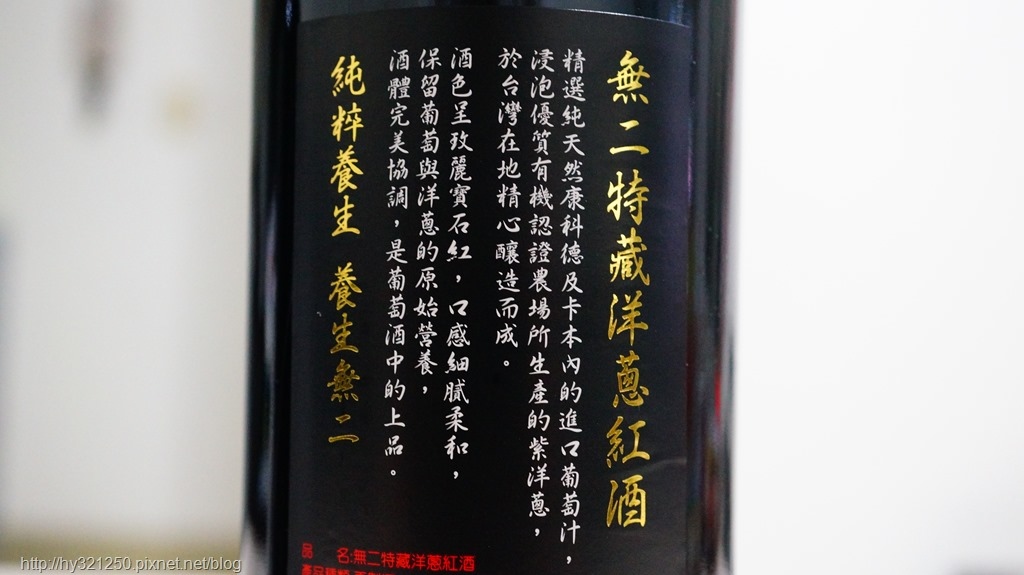 無二特藏洋蔥紅酒
精選純天然康科德及卡本內的進口葡萄汁，
浸泡優質有機認證農場所生產的紫洋蔥，
於台灣在地精心釀造而成。
酒色呈致麗寶石紅，口感細膩柔和，
保留葡萄與洋蔥的原始營養，
酒體完美協調，是葡萄酒中的上品。
純粹養生 養生無二
品 名:無二特藏洋蔥紅酒
http://hy321250.pixnet.net/blog